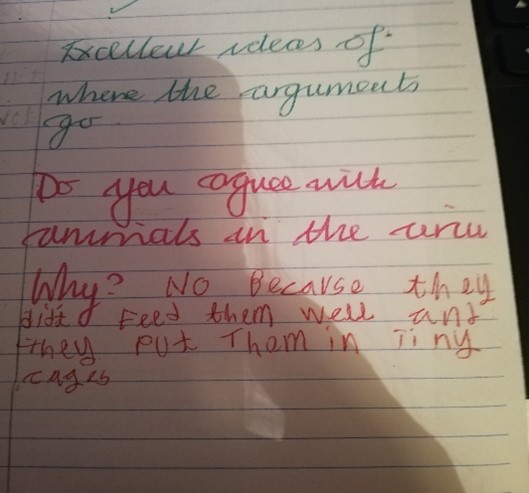 Excellent ideas of
where the arguments
go.
Do you agree with
animals in the
Why? No Because they
didt Feed them well and
they put Them in Tiny
cages